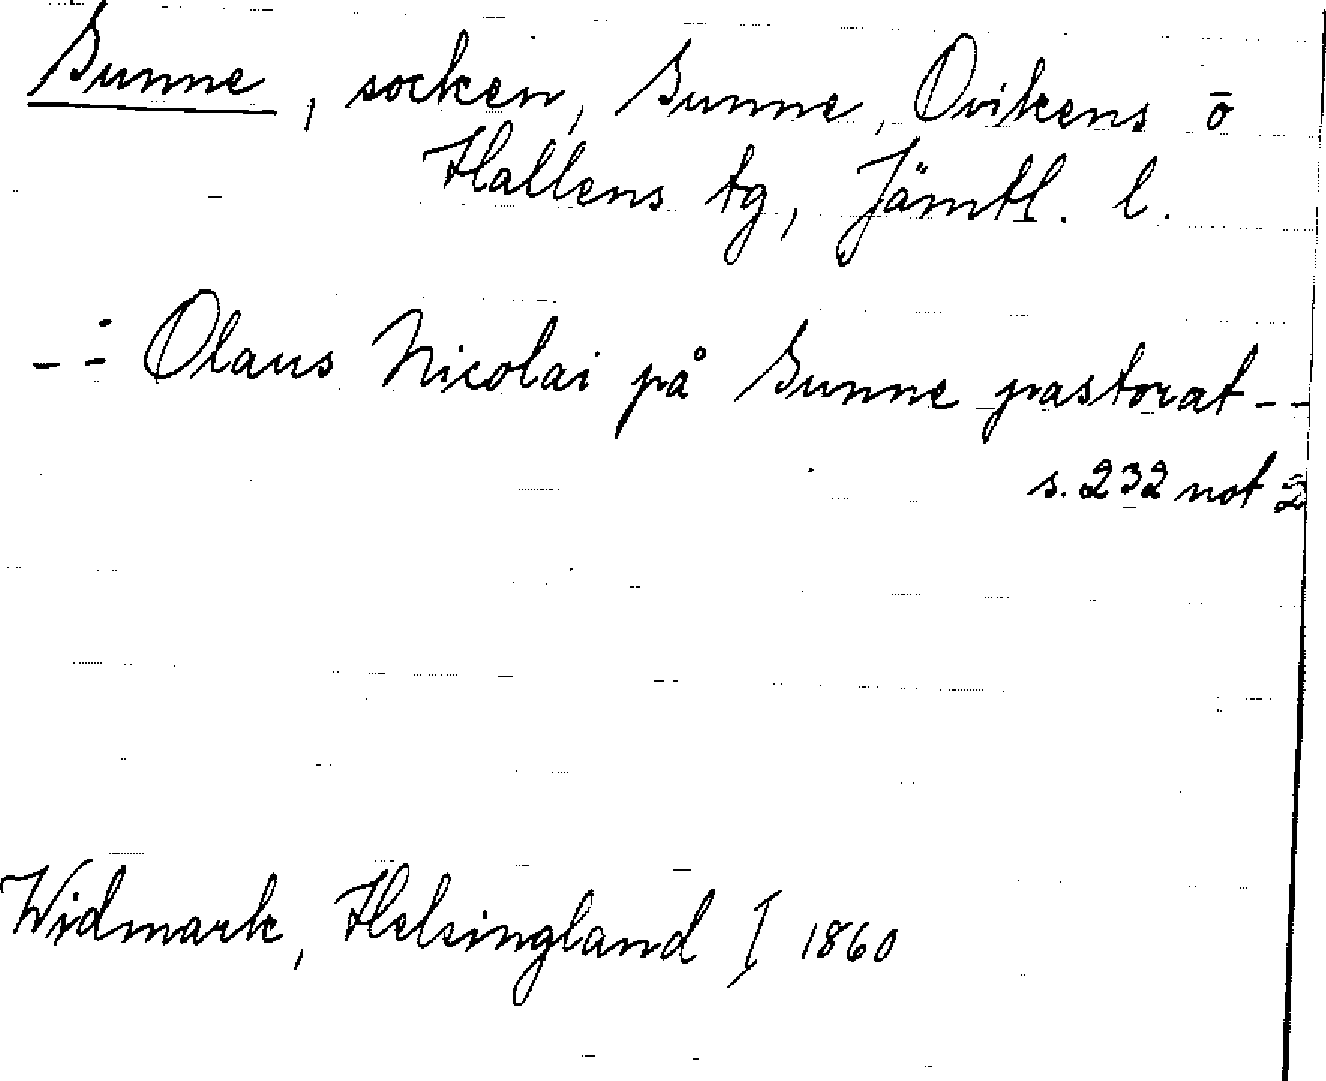 Sunne, socken, Sunne, Ovikens o
Hallens tg, Jämtl. l.
- - : Olaus Nicolai på Sunne pastorat - -
s. 232 not 2
Widmark, Helsingland I 1860